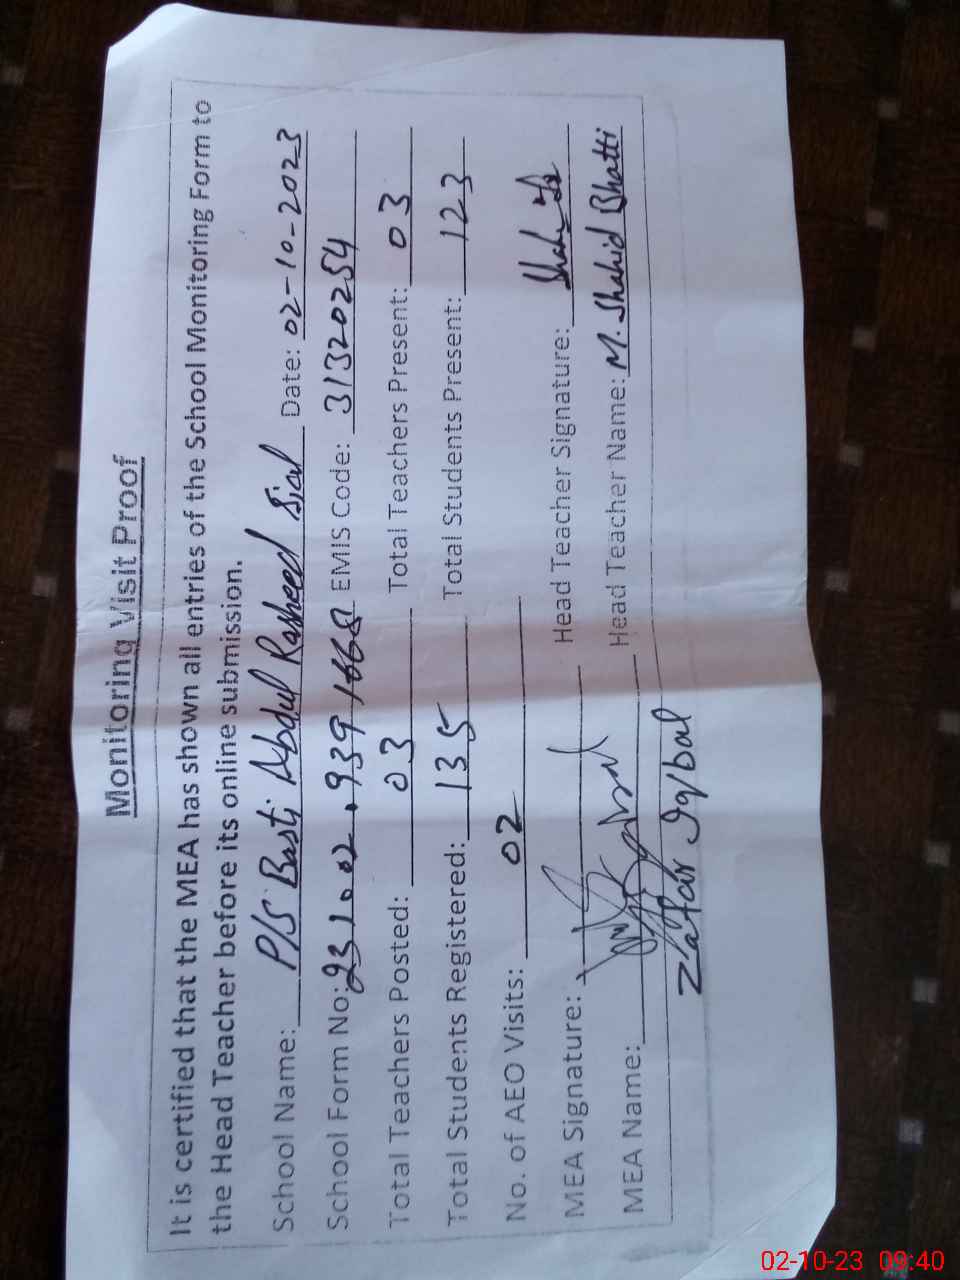 Monitoring Visit Proof
It is certified that the MEA has shown all entries of the School Monitoring Form to
the Head Teacher before its online submission.
School Name: P/S Basti Abdul Rasheed Sial Date: 02-10-2023
School Form No: EMIS Code: 31320254
Total Teachers Posted: 03 Total Teachers Present: 03
Total Students Registered: 135 Total Students Present: 123
No. of AEO Visits: 02
MEA Signature: Head Teacher Signature:
MEA Name: Head Teacher Name: M. Shahid Bhatti
Zafar Iqbal
02-10-23 09:40